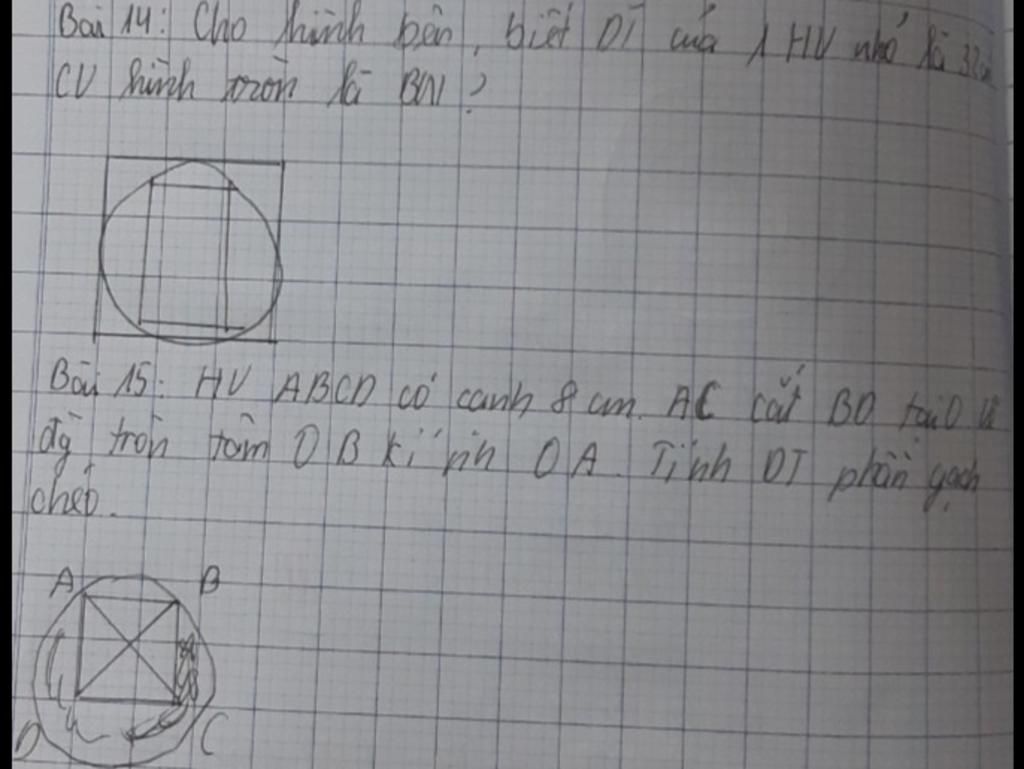 Bài 14: Cho hình bên, biết DT của 1 HV nhỏ là 32
CV hình tròn là BN?
Bài 15: HV ABCD có cạnh 8 cm. AC cắt BD tại O
tròn tâm O B kí nh OA. Tính DT phần gạch
chéo.
A B
D C